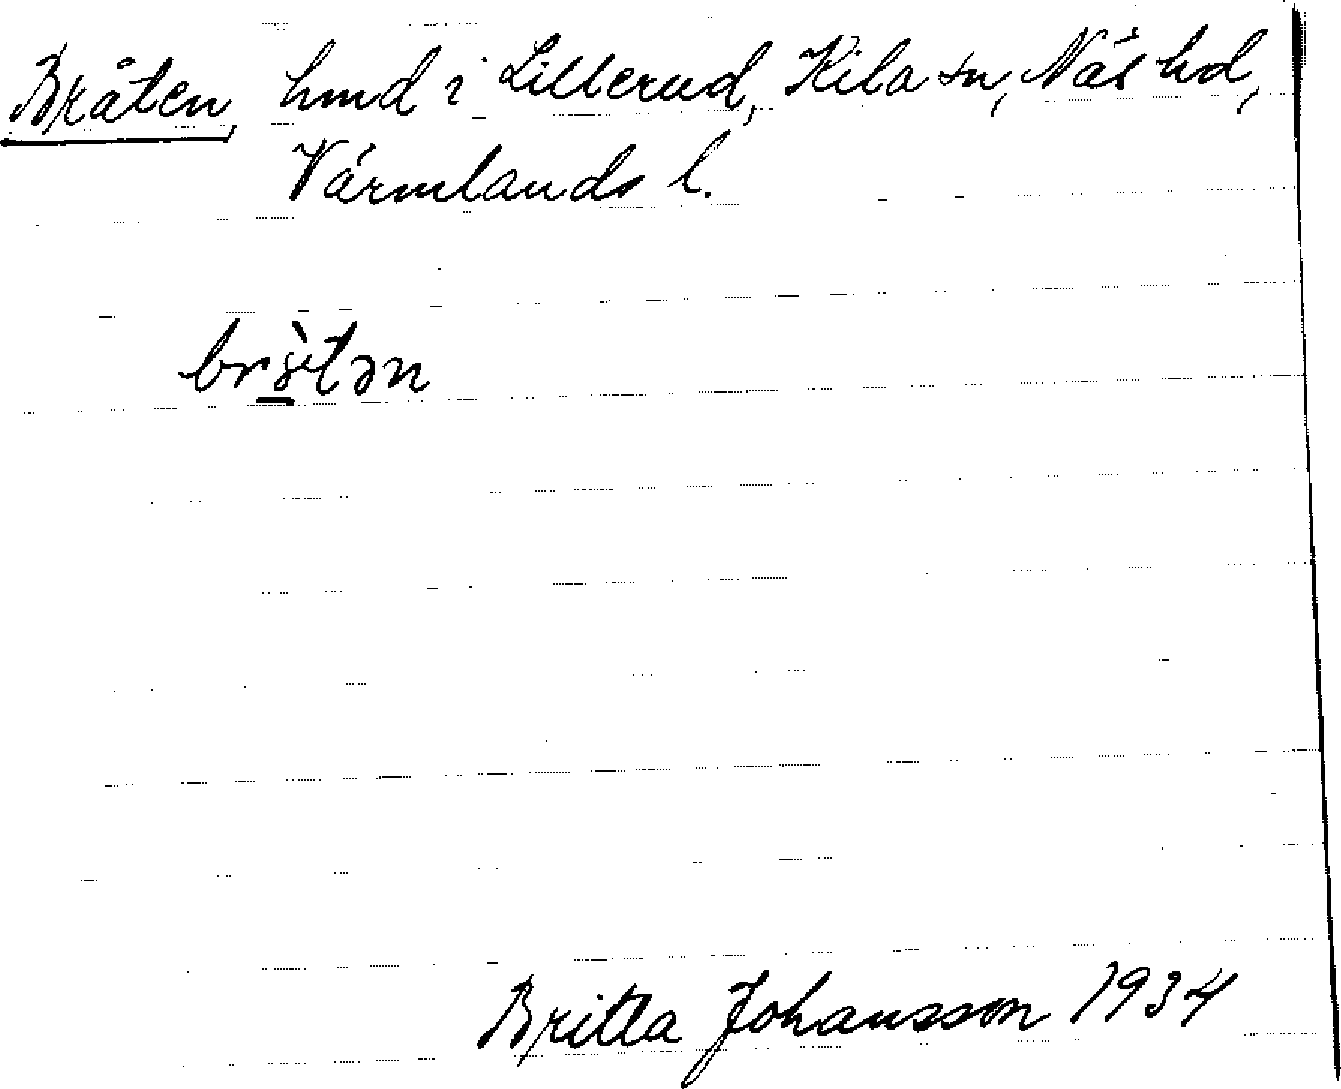 Bråten, hmd i Lillerud, Kila sn, Näs hd,
Värmlands l.
Britta Johansson 1934